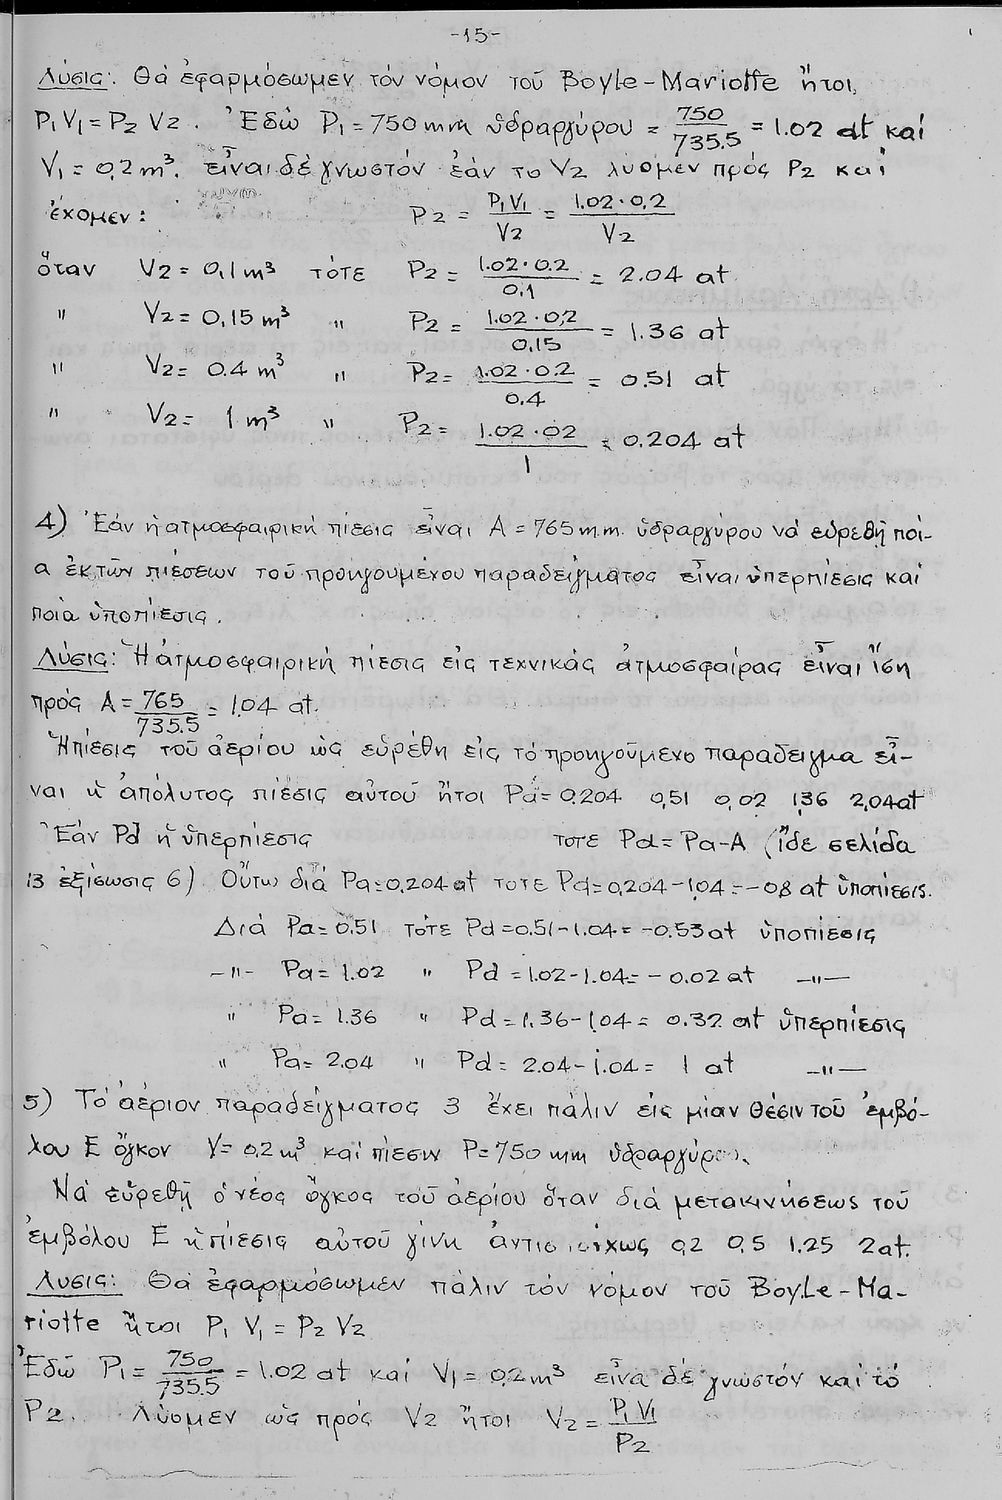 -15-
Λύσις: Θά ἐφαρμόσωμεν τόν νόμον τοῦ Boyle-Mariotte ἤτοι
P₁V₁=P₂ V₂. Ἐδῶ P₁=750 mm ὑδραργύρου = 750/735.5 = 1.02 at καί
V₁=0,2 m³. εἶναι δέ γνωστόν ἐάν το V₂ λύομεν πρός P₂ καί
ἔχομεν: P₂ = P₁V₁/V₂ = 1.02·0,2/V₂
ὅταν V₂=0,1 m³ τότε P₂ = 1.02·0.2/0.1 = 2.04 at
" V₂=0,15 m³ " P₂ = 1.02·0,2/0,15 = 1.36 at
" V₂= 0.4 m³ " P₂= 1.02·0.2/0.4 = 0.51 at
" V₂= 1 m³ " P₂= 1.02·02/1 = 0.204 at
4) Ἐάν ἡ ατμοσφαιρική πίεσις εἶναι A=765 m.m. ὑδραργύρου νά εὑρεθῆ ποί-
α ἐκ τῶν πιέσεων τοῦ προηγουμένου παραδείγματος εἶναι ὑπερπίεσις καί
ποία ὑποπίεσις.
Λύσις: Ἡ ἀτμοσφαιρική πίεσις εἰς τεχνικάς ἀτμοσφαίρας εἶναι ἴση
πρός A= 765/735.5 = 1.04 at.
Ἡ πίεσις τοῦ ἀερίου ὡς εὑρέθη εἰς τό προηγούμενο παραδειγμα εἶ-
ναι ἡ ἀπόλυτος πίεσις αὐτοῦ ἤτοι Pa=0.204 0,51 0,02 1,36 2,04at
Ἐάν Pd ἡ ὑπερπίεσις τοτε Pd= Pa-A (ἴδε σελίδα
13 ἐξίσωσις 6) Οὕτω διά Pa=0,204 at τοτε Pd=0,204-1,04=-0,8 at ὑποπίεσις.
Διά Pa= 0.51 τότε Pd=0.51-1.04=-0.53at ὑποπίεσις
-"- Pa=1.02 " Pd =1.02-1.04= -0.02 at -"-
" Pa=1.36 " Pd=1.36-1.04= 0.32 at ὑπερπίεσις
" Pa=2.04 " Pd= 2.04-1.04= 1 at -"-
5) Τό ἀέριον παραδείγματος 3 ἔχει πάλιν εἰς μίαν θέσιν τοῦ ἐμβό-
λου E ὄγκον V=0.2 m³ καί πίεσιν P=750 mm ὑδραργύρου.
Νά εὑρεθῆ ὁ νέος ὄγκος τοῦ ἀερίου ὅταν διά μετακινήσεως τοῦ
ἐμβόλου E ἡ πίεσις αὐτοῦ γίνη ἀντιστοίχως 0,2 0,5 1.25 2at.
Λυσις: Θά ἐφαρμόσωμεν πάλιν τόν νόμον τοῦ Boyle-Ma-
riotte ἤτοι P₁ V₁ = P₂ V₂
Ἐδῶ P₁= 750/735.5 = 1.02 at καί V₁=0,2 m³ εἶνα δέ γνωστόν καί τό
P₂. Λύομεν ὡς πρός V₂ ἤτοι V₂ = P₁ V₁/P₂